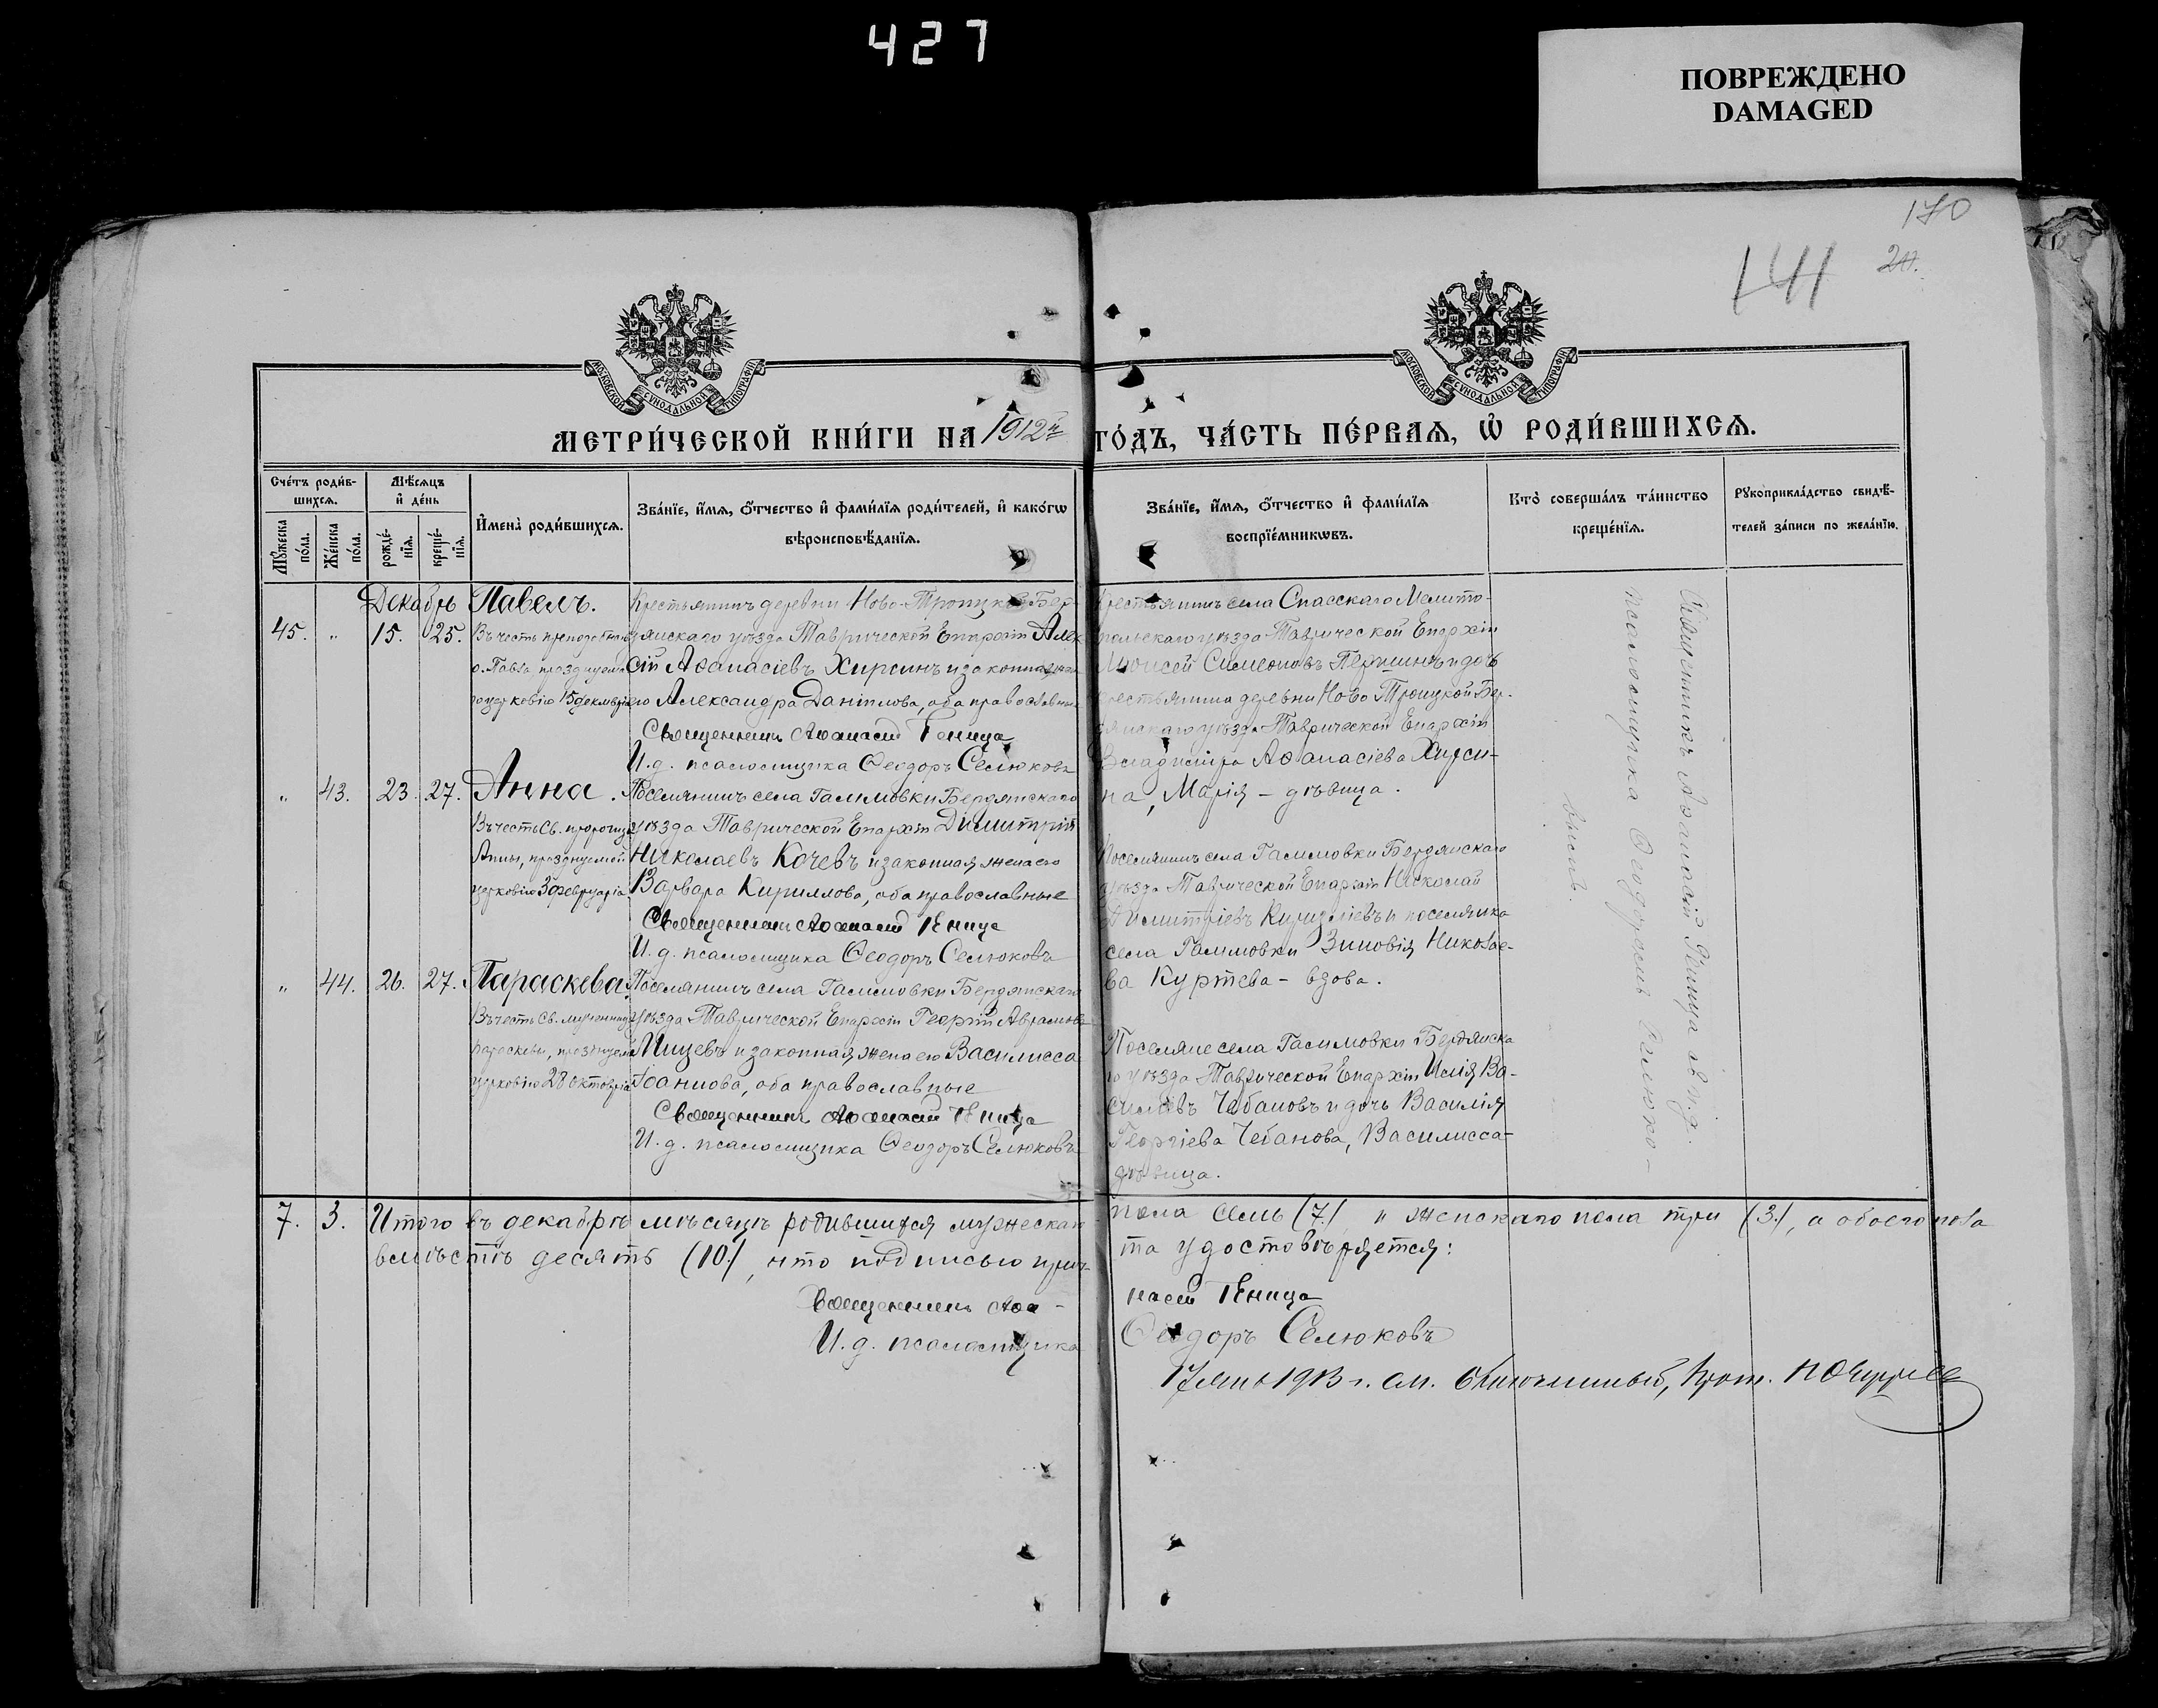 427
ПОВРЕЖДЕНО
DAMAGED
170
141
20.
МОСКОВСКОЙ СѴНОДАЛЬНОЙ ТИПОГРАФІИ
МОСКОВСКОЙ СѴНОДАЛЬНОЙ ТИПОГРАФІИ
МЕТРИ́ЧЕСКОЙ КНИ́ГИ НА 1912й ГО́ДЪ, ЧА́СТЬ ПЕ́РВАѦ, Ѽ РОДИ́ВШИХСѦ.
Сче́тъ роди́вшихсѧ.
Мꙋ́жеска по́ла.
Же́нска по́ла.
Мѣ́сѧцъ и҆ де́нь
рожде́нїѧ.
креще́нїѧ.
И҆мена̀ роди́вшихсѧ.
Зва́нїе, и҆́мѧ, ѻ҆́тчество и҆ фами́лїѧ роди́телей, и҆ како́гѡ
вѣроисповѣ́данїѧ.
Зва́нїе, и҆́мѧ, ѻ҆́тчество и҆ фами́лїѧ
воспрїе́мникѡвъ.
Кто̀ соверша́лъ та́инство
креще́нїѧ.
Рꙋкоприкла́дство свидѣ́-
телей за́писи по жела́нїю.
Декабрь
45. " 15. 25.
Павелъ.
Въ честь преподобнаго
о. Павла, празднуема
го церковію 15 декабрія
Крестьянинъ деревни Ново-Троицкой Бер-
дянскаго уѣзда Таврической Епархіи Алек
сій Аѳанасіевъ Хирсинъ и законная жена
его Александра Даніилова, оба православные
Священникъ Аѳанасій Геница
И. д. псаломщика Ѳеодоръ Селюковъ
Крестьянинъ села Спасскаго Мелито-
польскаго уѣзда Таврической Епархіи
Моисей Симеоновъ Першинъ и дочь
крестьянина деревни Ново Троицкой Бер-
дянскаго уѣзда Таврической Епархіи
Владиміра Аѳанасіева Хирси-
на, Марія - дѣвица.
" 43. 23. 27.
Анна.
Въ честь Св. пророчицы
Анны, празднуемой
церковію 3 февруарія.
Поселянинъ села Галимовки Бердянскаго
уѣзда Таврической Епархіи Димитрій
Николаевъ Кочевъ и законная жена его
Варвара Кириллова, оба православные
Священникъ Аѳанасій Геница
И. д. псаломщика Ѳеодоръ Селюковъ
Поселянинъ села Галимовки Бердянскаго
уѣзда Таврической Епархіи Николай
села Галимовки Зиновія Николае-
ва Куртева - вдова.
" 44. 26. 27.
Параскева.
Въ честь Св. мученицы
Параскевы, празднуемой
церковію 28 октоврія
Поселянинъ села Галимовки Бердянскаго
уѣзда Таврической Епархіи Георгій Аврамовъ
и законная жена его Василисса
Іоаннова, оба православные
Священникъ Аѳанасій Геница
И. д. псаломщика Ѳеодоръ Селюковъ
Поселяне села Галимовки Бердянска
го уѣзда Таврической Епархіи Илія Ва-
силіевъ Чебановъ и дочь Василія
Георгіева Чебанова, Василисса-
дѣвица.
Священникъ Аѳанасій Геница съ и. д.
псаломщика Ѳеодоромъ Селюко-
вымъ.
7. 3. Итого въ декабрѣ мѣсяцѣ родившихся мужескаго пола семь (7.), и женскаго пола три (3.), а обоего пола
вмѣстѣ десять (10.), что подписью прич- та удостовѣряется:
Священникъ Аѳа- насій Геница
И. д. псаломщика Ѳеодоръ Селюковъ
1913 г. см. Благочинный, Прот.